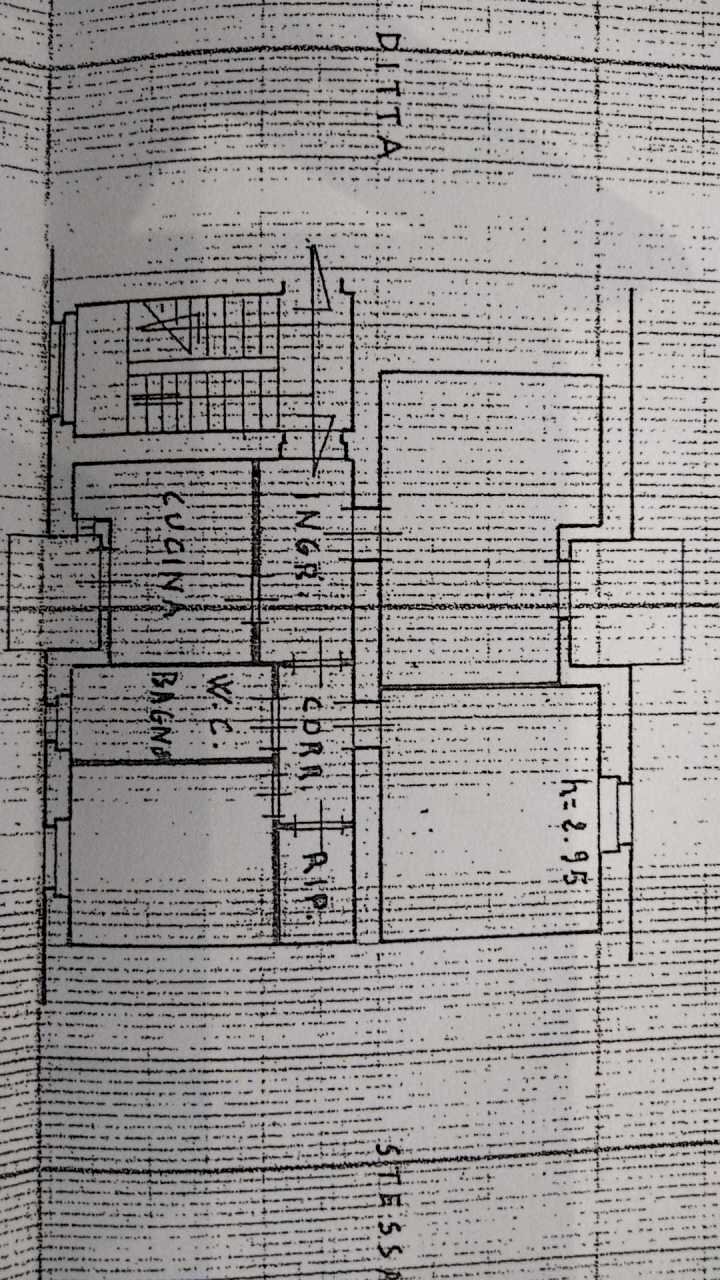 DITTA
INGR.
CUCINA
W.C.
BAGNO
CORR.
RIP.
h=2.95
STESSA